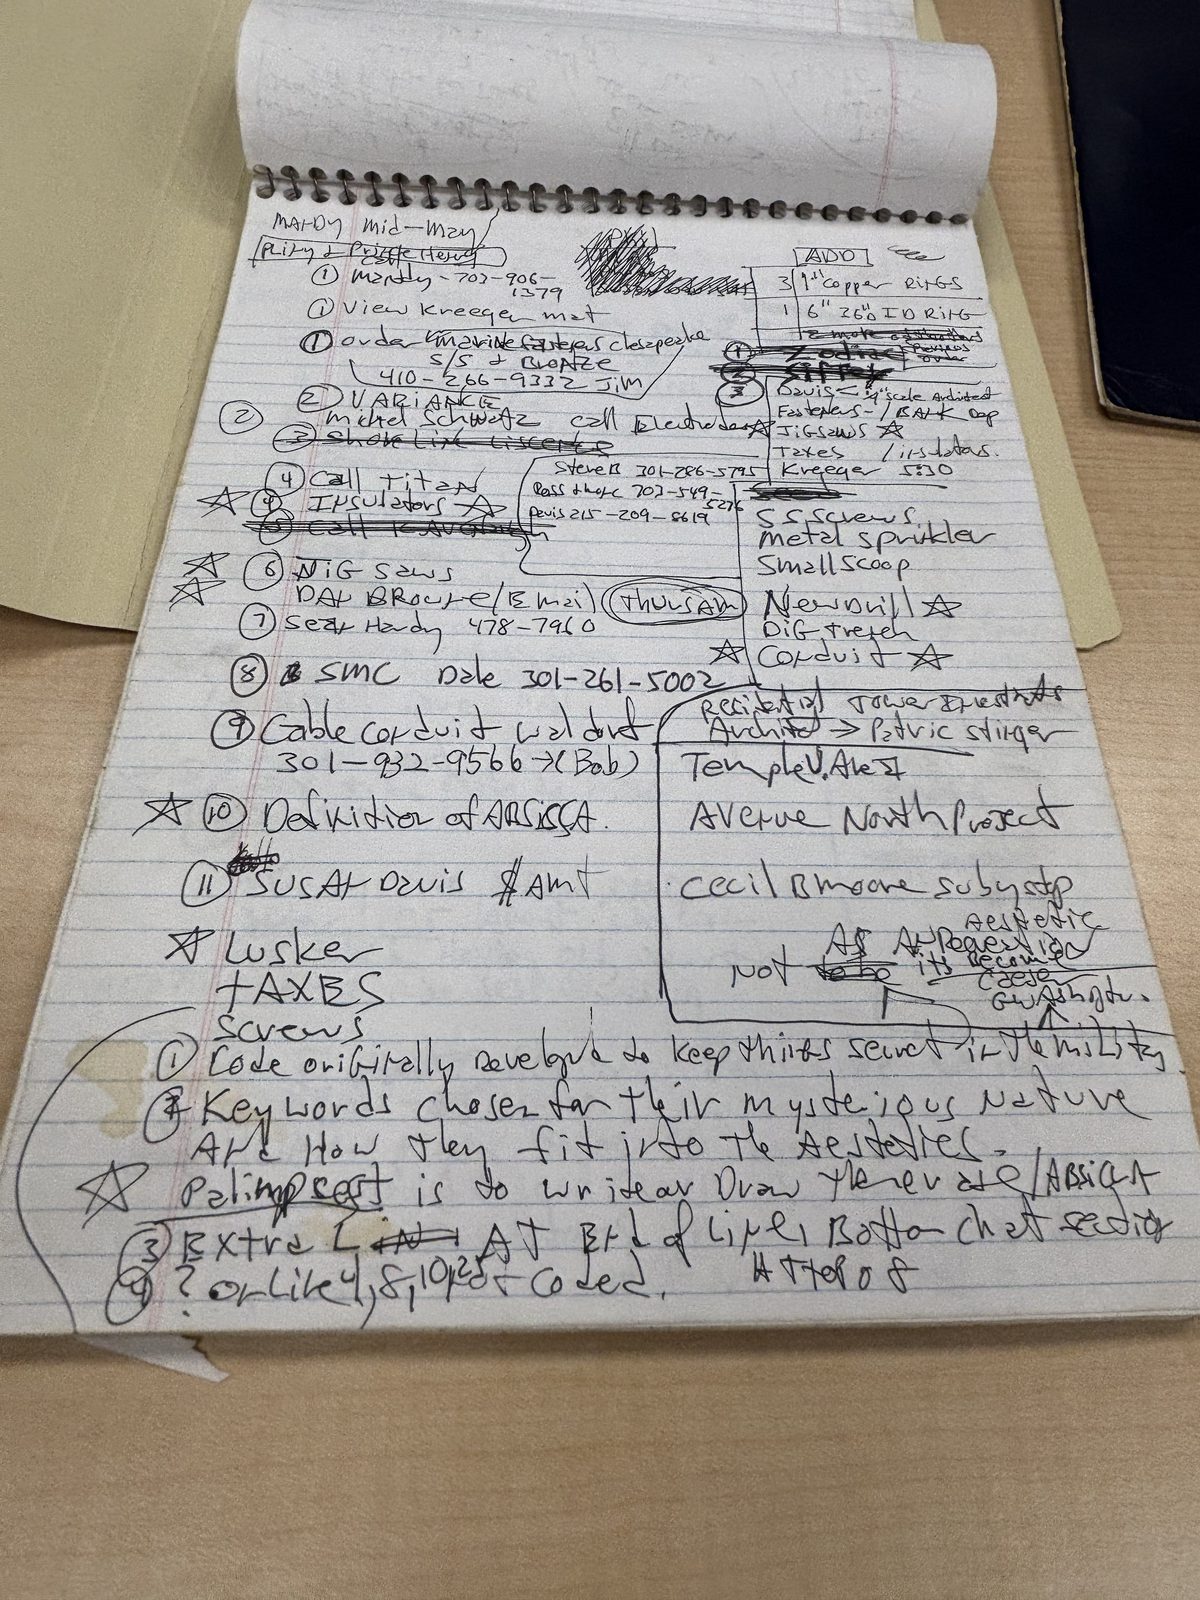 Mandy mid-May
① Mandy - 703-906-1379
① View Kreeger mat
① order marine fasteners chesapeake
S/S & Bronze
410-266-9332 Jim
② VARIANCE
② Michel Schwatz call Electrodes ☆
④ Call Titan
☆ ④ Insulators ☆
☆ ⑥ JIG Saws
☆ DAN BROWNE/Email (Thurs AM)
⑦ Sean Hardy 478-7960
⑧ SMC Dale 301-261-5002
⑨ Cable conduit waldorf
301-932-9566 → (Bob)
☆ ⑩ Definition of ABSISSA.
⑪ SUSAN Davis $ AMT
☆ Lusker
TAXES
Screws
Steve B 301-286-5795
Ross & More 703-549-5276
Devis 215-209-8619
ADD
3 1" copper RINGS
1 6" 26" ID RING
2 more of
previous order
① Zodiac
② Siffey
③ Davis < 1/4" scale Architect
Fasteners - / BANK Dep
JIGSAWS ☆
Taxes / insulators.
Kreeger 5:30
S S Screws
metal sprinkler
Small scoop
New Drill ☆
DIG trench
☆ Conduit ☆
Residential Tower
Architect → Patric Stinger
Temple U.
Avenue North Project
Cecil B moore subystop
NOT to be As its become
Aestetic
① Code originally Developed to keep things secret in the military
② Keywords chosen for their mysterious Nature
And How they fit into the Aestetics.
☆ Palimpsest is to write or Draw then erase/ABSICSA
③ Extra L IN AT End of Line, Bottom chat section
④ ? on Line 4, 8, 10, 25 not coded.